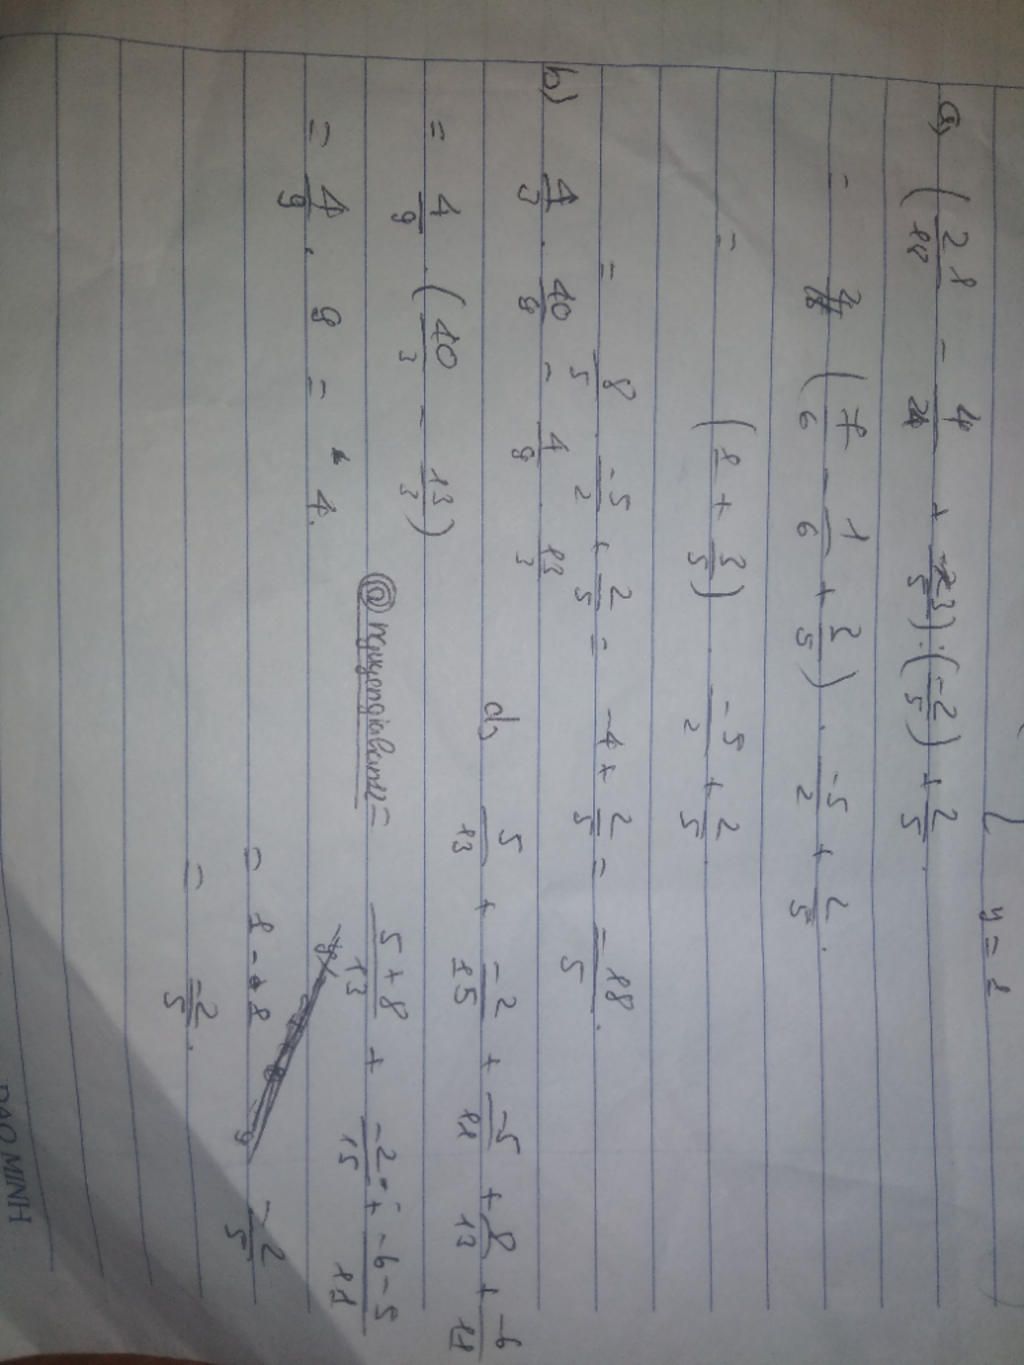 y = 1
a) (28/18 - 4/24 + 3/5) : (-2/5) + 2/5.
= (7/6 - 1/6 + 3/5) . -5/2 + 2/5.
= (1 + 3/5) . -5/2 + 2/5
= 8/5 . -5/2 + 2/5 = -4 + 2/5 = -18/5.
b) 4/3 . 40/9 - 4/9 . 13/3
= 4/9 . (40/3 - 13/3)
= 4/9 . 9 = 4.
d) 5/13 + -2/15 + -5/11 + 8/13 + -6/11
= 5+8/13 + -2/15 + -6-5/11
= 1 - 1 -2/5
= -2/5.